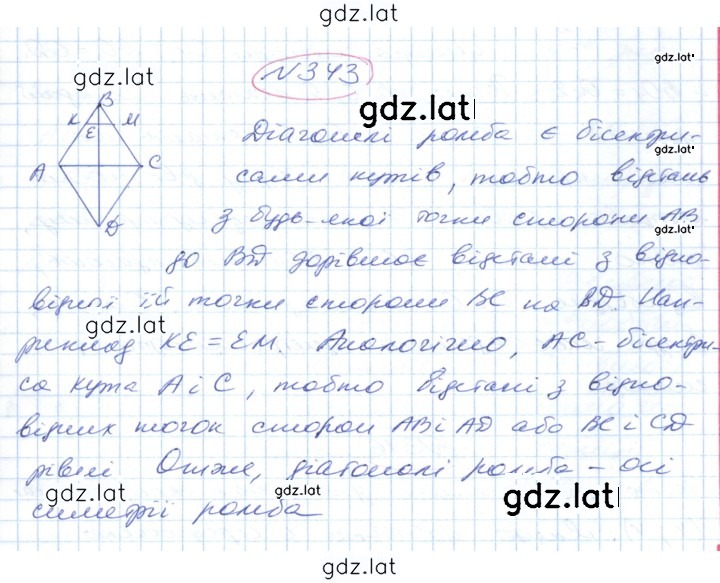 gdz.lat
N 343
gdz.lat
gdz.lat
gdz.lat
B
K E M
A C
D
Діагоналі ромба є бісектри-
gdz.lat
сами кутів, тобто відстань
з будь-якої точки сторони AB
gdz.lat
до BD дорівнює відстані з відпо-
відної їй точки сторони BC на BD. Нап-
gdz.lat
риклад KE = EM. Аналогічно, AC - бісектри-
са кута A і C, тобто відстані з відпо-
відних точок сторон AB і AD або BC і CD
рівні Отже, діагоналі ромба - осі
gdz.lat
gdz.lat
gdz.lat
симетрії ромба
gdz.lat